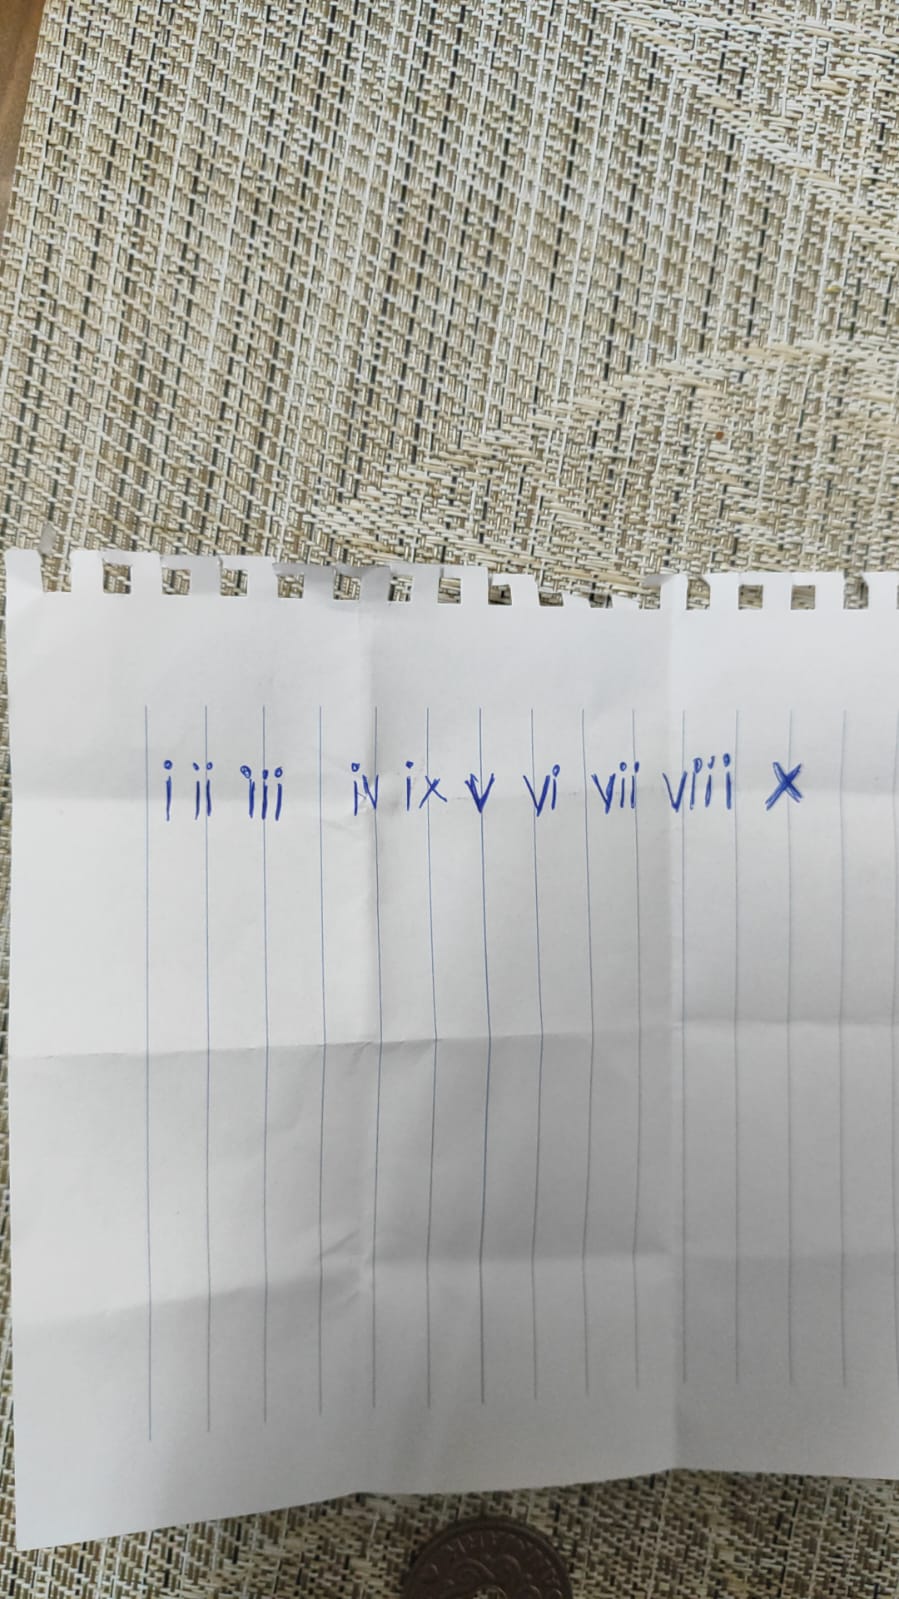 i ii iii iv ix v vi vii viii x